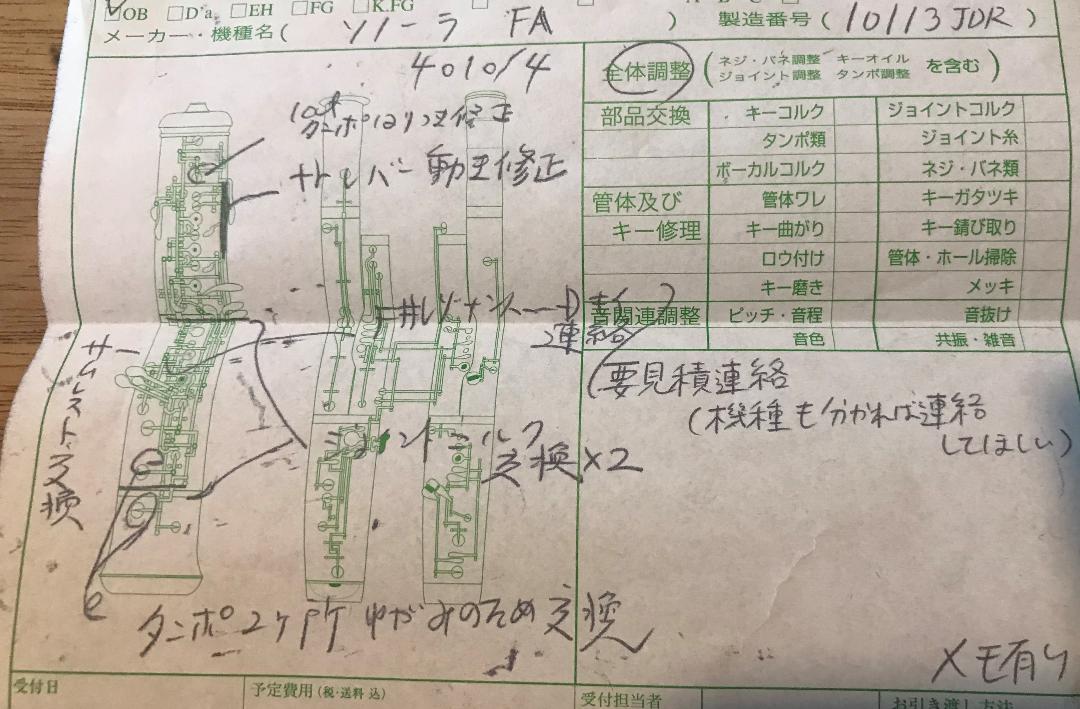 ☑OB □D'a □EH □FG □K.FG
メーカー・機種名( ソノーラ FA ) 製造番号(10113JDR)
4010/4
全体調整 (ネジ・バネ調整 キーオイル
ジョイント調整 タンポ調整 を含む)
部品交換 キーコルク ジョイントコルク
タンポ類 ジョイント糸
ボーカルコルク ネジ・バネ類
管体及び 管体ワレ キーガタツキ
キー修理 キー曲がり キー錆び取り
ロウ付け 管体・ホール掃除
キー磨き メッキ
音関連調整 ピッチ・音程 音抜け
音色 共振・雑音
タンポはりつき修正
レバー動き修正
連絡
(要見積連絡
(機種も分かれば連絡
してほしい)
サムレスト交換
ジョイントコルク
交換×2
e
タンポ2ヶ所 ゆがみのため 交換
メモ有り
受付日 予定費用(税・送料 込) 受付担当者 お引き渡し方法